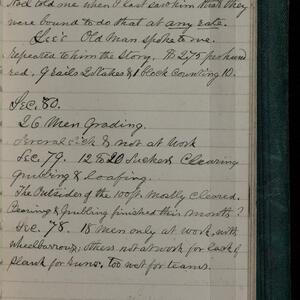 told one when I last saw him that they
were bound to do that at any rate.
Old Man spoke to me.
repeated to him the story. 2.75 per hund
red. 9 rails 2 stakes & 1 block counting 10.
Sec. 80.
26 Men Grading.
Several sick & not at work
Sec. 79. 12 & 20 Clearing
grubbing & loafing.
The Outsides of the 100ft. mostly cleared.
Clearing & Grubbing finished this month?
Sec. 78. 18 men only at work, with
wheelbarrows; others not at work for lack of
plank for runs. too wet for teams.